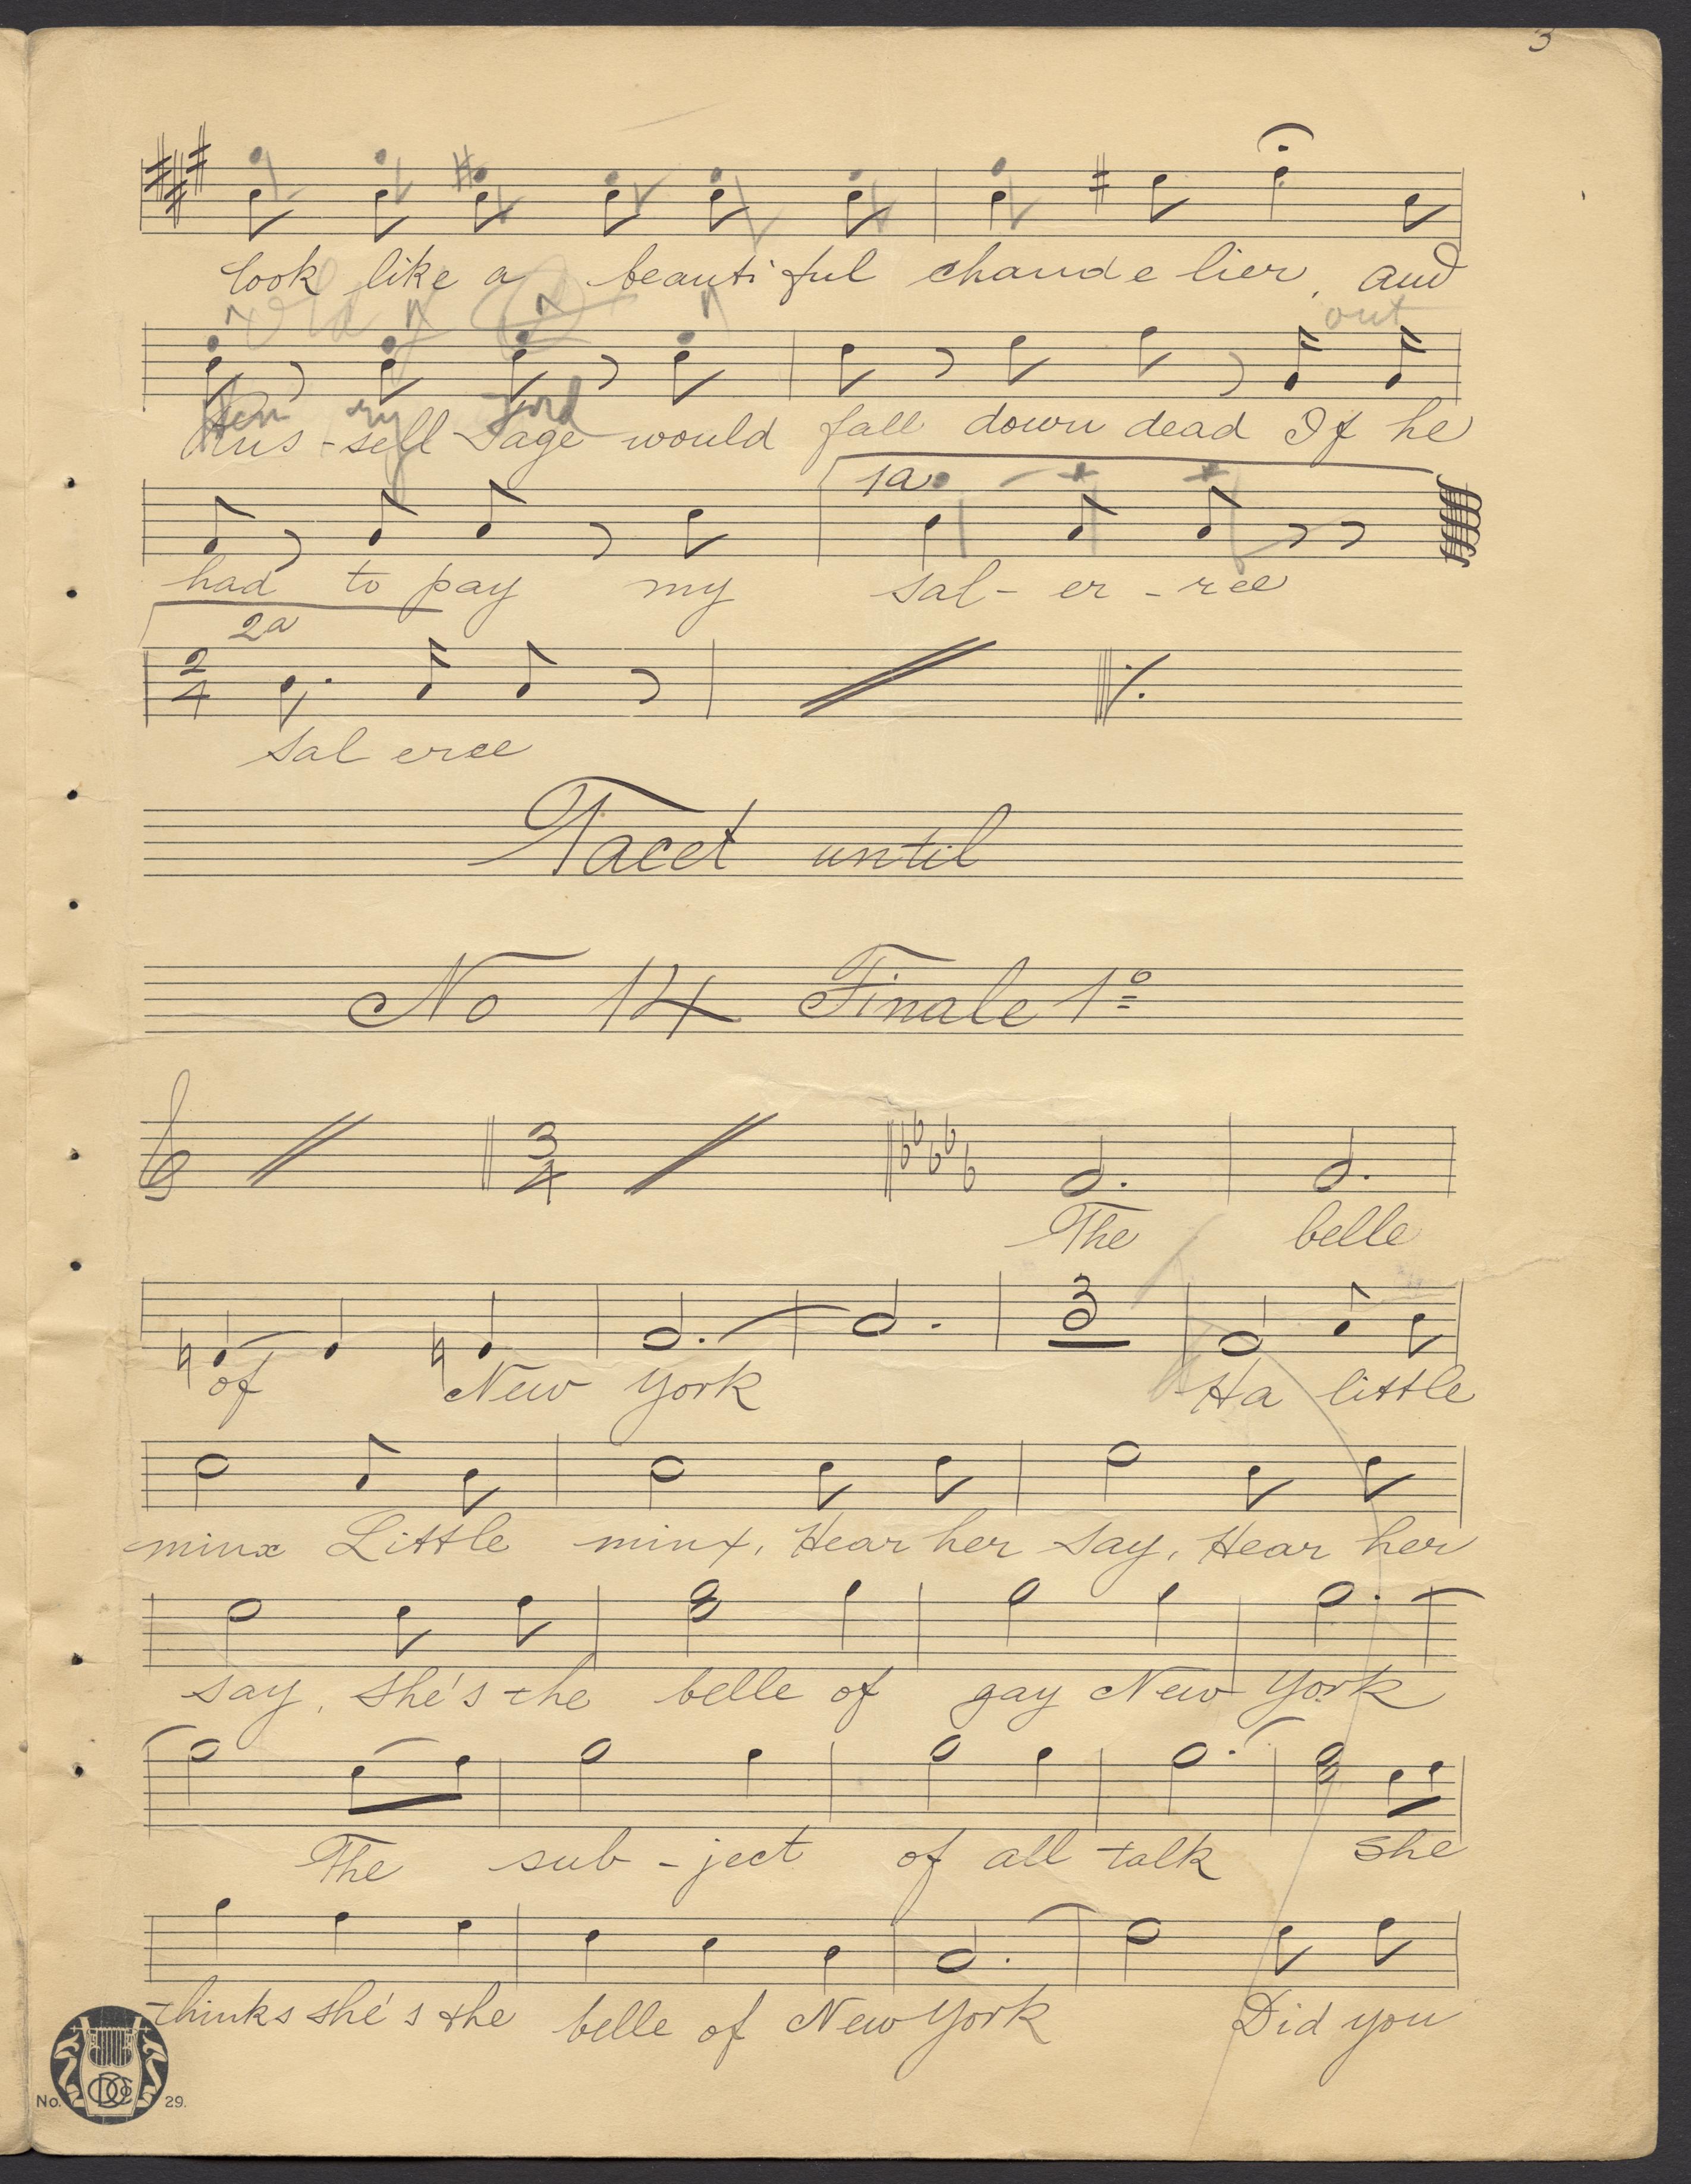 3
look like a beauti ful chand e lier, and
old out
Hen ry Ford
Rus - sell Sage would fall down dead If he
1a
had to pay my sal - er - ree
2a
2 4
sal eree
Tacet until
No 14 Finale 1o
3 4
The belle
3
of New York Ha little
minx Little minx, Hear her say, Hear her
say, she's the belle of gay New York
The sub - ject of all talk She
thinks she's the belle of New York Did you
No. DCo 29.